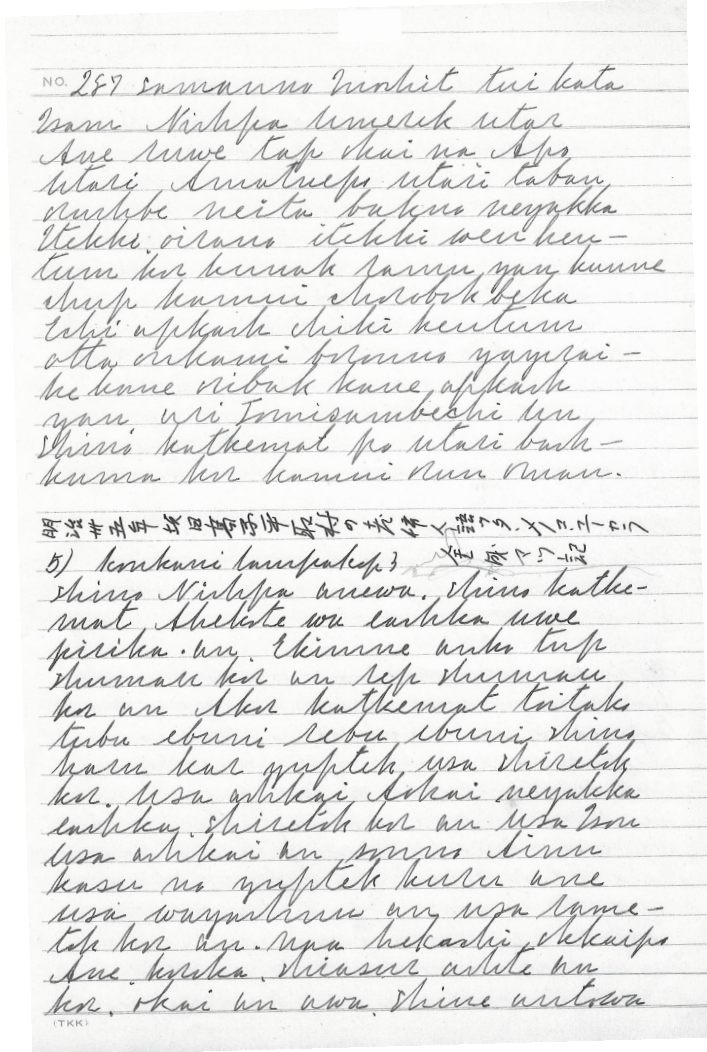 NO. 287 samauno Moshit tui kata
Isam Nishpa Umerek utar
Ane ruwe tap okai na Apo
Utari Amatnepo utari taban
orushbe neita bakno neyakka
Itekki oirano itekki wen keu-
tum kor kunak ramu yan kunne
chup kamui chorobok beka
Echi apkash chiki keutum
otta onkami boronno yayirai-
ke kane oribak kane apkash
yan, ari Tomisambechi un
Shino katkemat po utari bash-
kuma kor kamui orun oman.
明治卅五年
5) konkani
記
Shino Nishpa anewa. Shino katke-
mat Ahekote wa eashka uwe
pirika . an. Ekimne anko tup
shumau kor an rep shumau
kor an Akor katkemat toitako
tubu ebuni rebu ebuni shino
haru kar yuptek usa shiretok
kor. Usa ashkai Aokai neyakka
eashka, shiretok kor an Usa Ison
usa ashkai an sonno Ainu
kasu no yuptek kuru ane
usa wayashnu an usa rame-
tok kor an. naa hekachi okkaipo
Ane koroka, shiasur ashte an
kor. okai an awa, Shine antowa
(TKK)